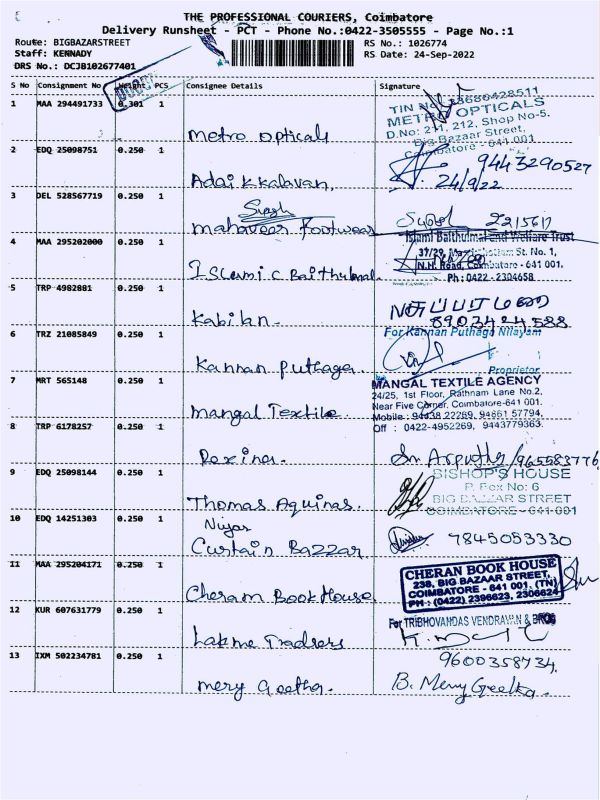 THE PROFESSIONAL COURIERS, Coimbatore
Delivery Runsheet - PCT - Phone No.:0422-3505555 - Page No.:1
Route: BIGBAZARSTREET
RS No.: 1026774
Staff: KENNADY
RS Date: 24-Sep-2022
DRS No.: DCJB102677401
S No Consignment No Weight PCS Consignee Details Signature
1 MAA 294491733 0.301 1
Metro opticals
METRO OPTICALS
D.No: 211, 212, Shop No-5.
Big Bazaar Street,
Coimbatore - 641 001
2 EDQ 25098751 0.250 1
Adaikkalavan,
9443290527
24/9/22
3 DEL 528567719 0.250 1
Singh
Mahaveer Footwear
4 MAA 295202000 0.250 1
Islamic Baithulmal
Islami Baithulmal and Welfare Trust
37/29, St. No. 1,
N.H. Road, Coimbatore - 641 001.
Ph : 0422 - 2304658
5 TRP 4982881 0.250 1
Kabilan.
8903424588
6 TRZ 21085849 0.250 1
Kannan Puthaga.
For Kannan Puthaga Nilayam
Proprietor
7 MRT 565148 0.250 1
Mangal Textile.
MANGAL TEXTILE AGENCY
24/25, 1st Floor, Rathnam Lane No.2,
Near Five Corner, Coimbatore-641 001.
Mobile : 94438 22269, 94861 57794,
Off : 0422-4952269, 9443779363.
8 TRP 6178257 0.250 1
Rexina.
965583776
9 EDQ 25098144 0.250 1
Thomas Aquinas.
BISHOP'S HOUSE
P. Box No: 6
BIG BAZAAR STREET
COIMBATORE - 641 001
10 EDQ 14251303 0.250 1
Curtain Bazzar
7845053330
11 MAA 295204171 0.250 1
Cheram Book House
CHERAN BOOK HOUSE
238, BIG BAZAAR STREET,
COIMBATORE - 641 001. (TN)
PH : (0422) 2396623, 2306624
12 KUR 607631779 0.250 1
Lakme Tradsers
For TRIBHOVANDAS VENDRAVAN & BROS
13 IXM 502234781 0.250 1
Mery Geetha.
9600358734.
B. Mery Geetha.